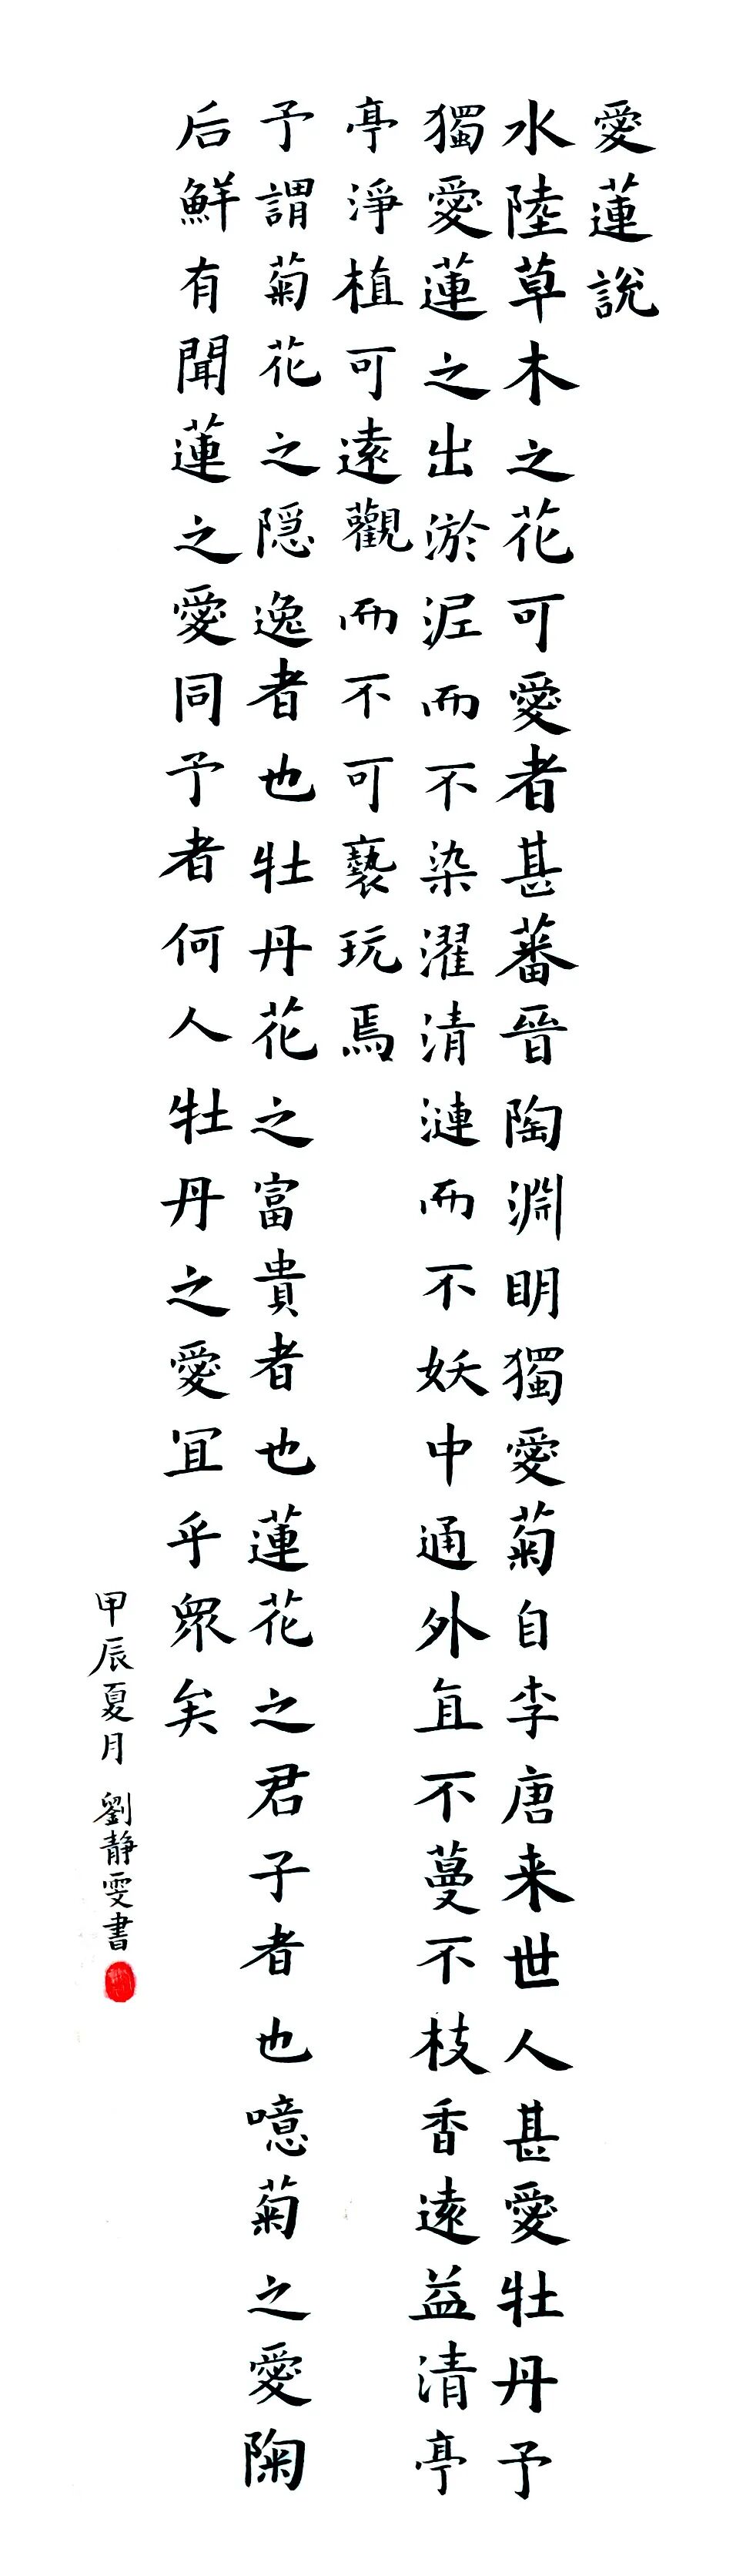 愛蓮說
水陸草木之花可愛者甚蕃晉陶淵明獨愛菊自李唐来世人甚愛牡丹予
獨愛蓮之出淤泥而不染濯清漣而不妖中通外直不蔓不枝香遠益清亭
亭淨植可遠觀而不可褻玩焉
予謂菊花之隠逸者也牡丹花之富貴者也蓮花之君子者也噫菊之愛陶
后鮮有聞蓮之愛同予者何人牡丹之愛宜乎眾矣
甲辰夏月 劉靜雯書